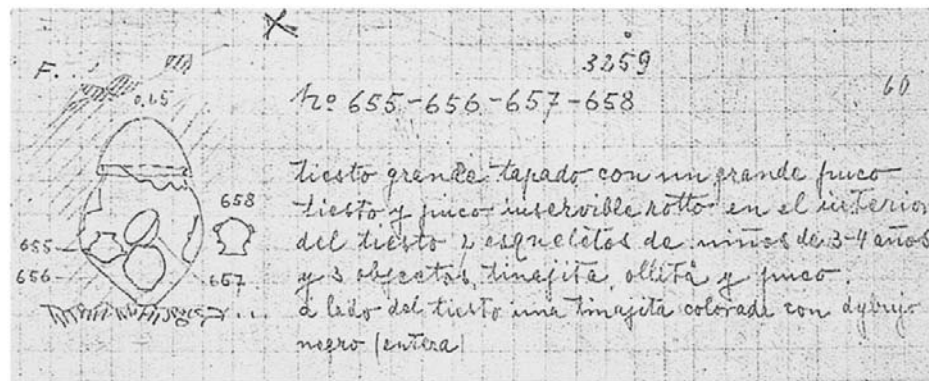 3259
60
F...
0,65
No 655-656-657-658
tiesto grande tapado con un grande puco
tiesto y puco inservible rotto en el interior
del tiesto 2 esqueletos de niños de 3-4 años
y 3 objectos, tinajita, ollita y puco.
a lado del tiesto una tinajita colorada con dybujo
negro (entera)
658
655
656
657